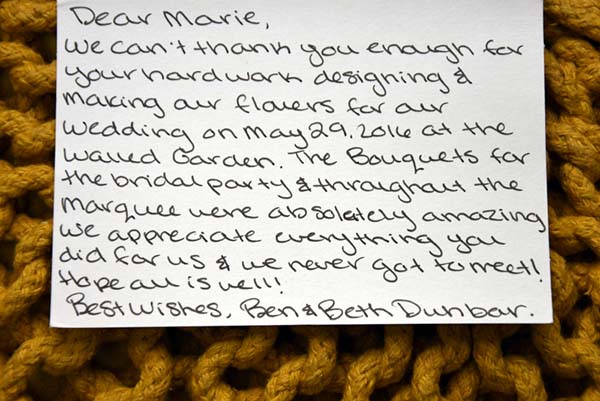 Dear Marie,
We can't thank you enough for
your hard work designing &
making our flowers for our
wedding on May 29, 2016 at the
Walled Garden. The Bouquets for
the bridal party & throughout the
marquee were absolutely amazing
We appreciate everything you
did for us & we never got to meet!
Hope all is well!!
Best Wishes, Ben & Beth Dunbar.